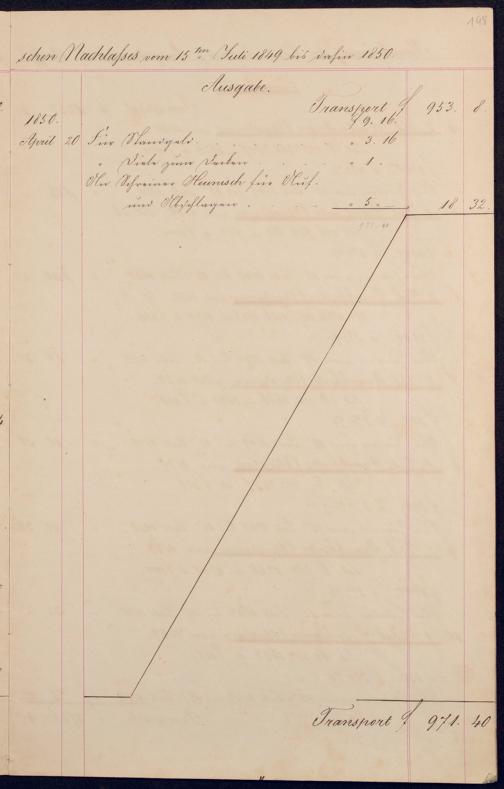 148
schen Nachlasses vom 15ten Juli 1849 bis dahin 1850.
Ausgabe.
Transport f 953. 8.
1850. f 9. 16.
April 20 Für Standgeld . . . . " 3. 16
" Diele zum Decken . . . " 1. -
An Schreiner Heunisch für Auf-
und Abschlagen . . . . " 5. - 18. 32.
971. 40
Transport f 971. 40